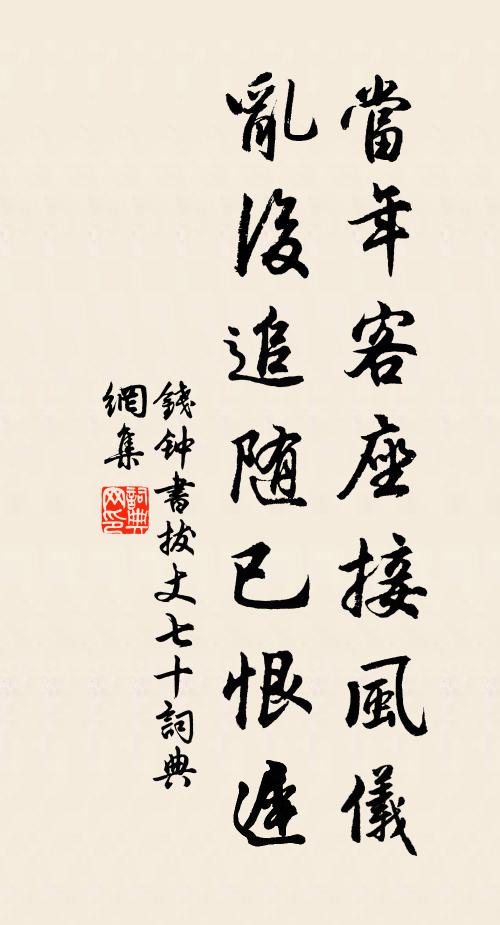 當年客座接風儀
亂後追随已恨遲
錢钟書拔丈七十詞典
網集
詞典網印